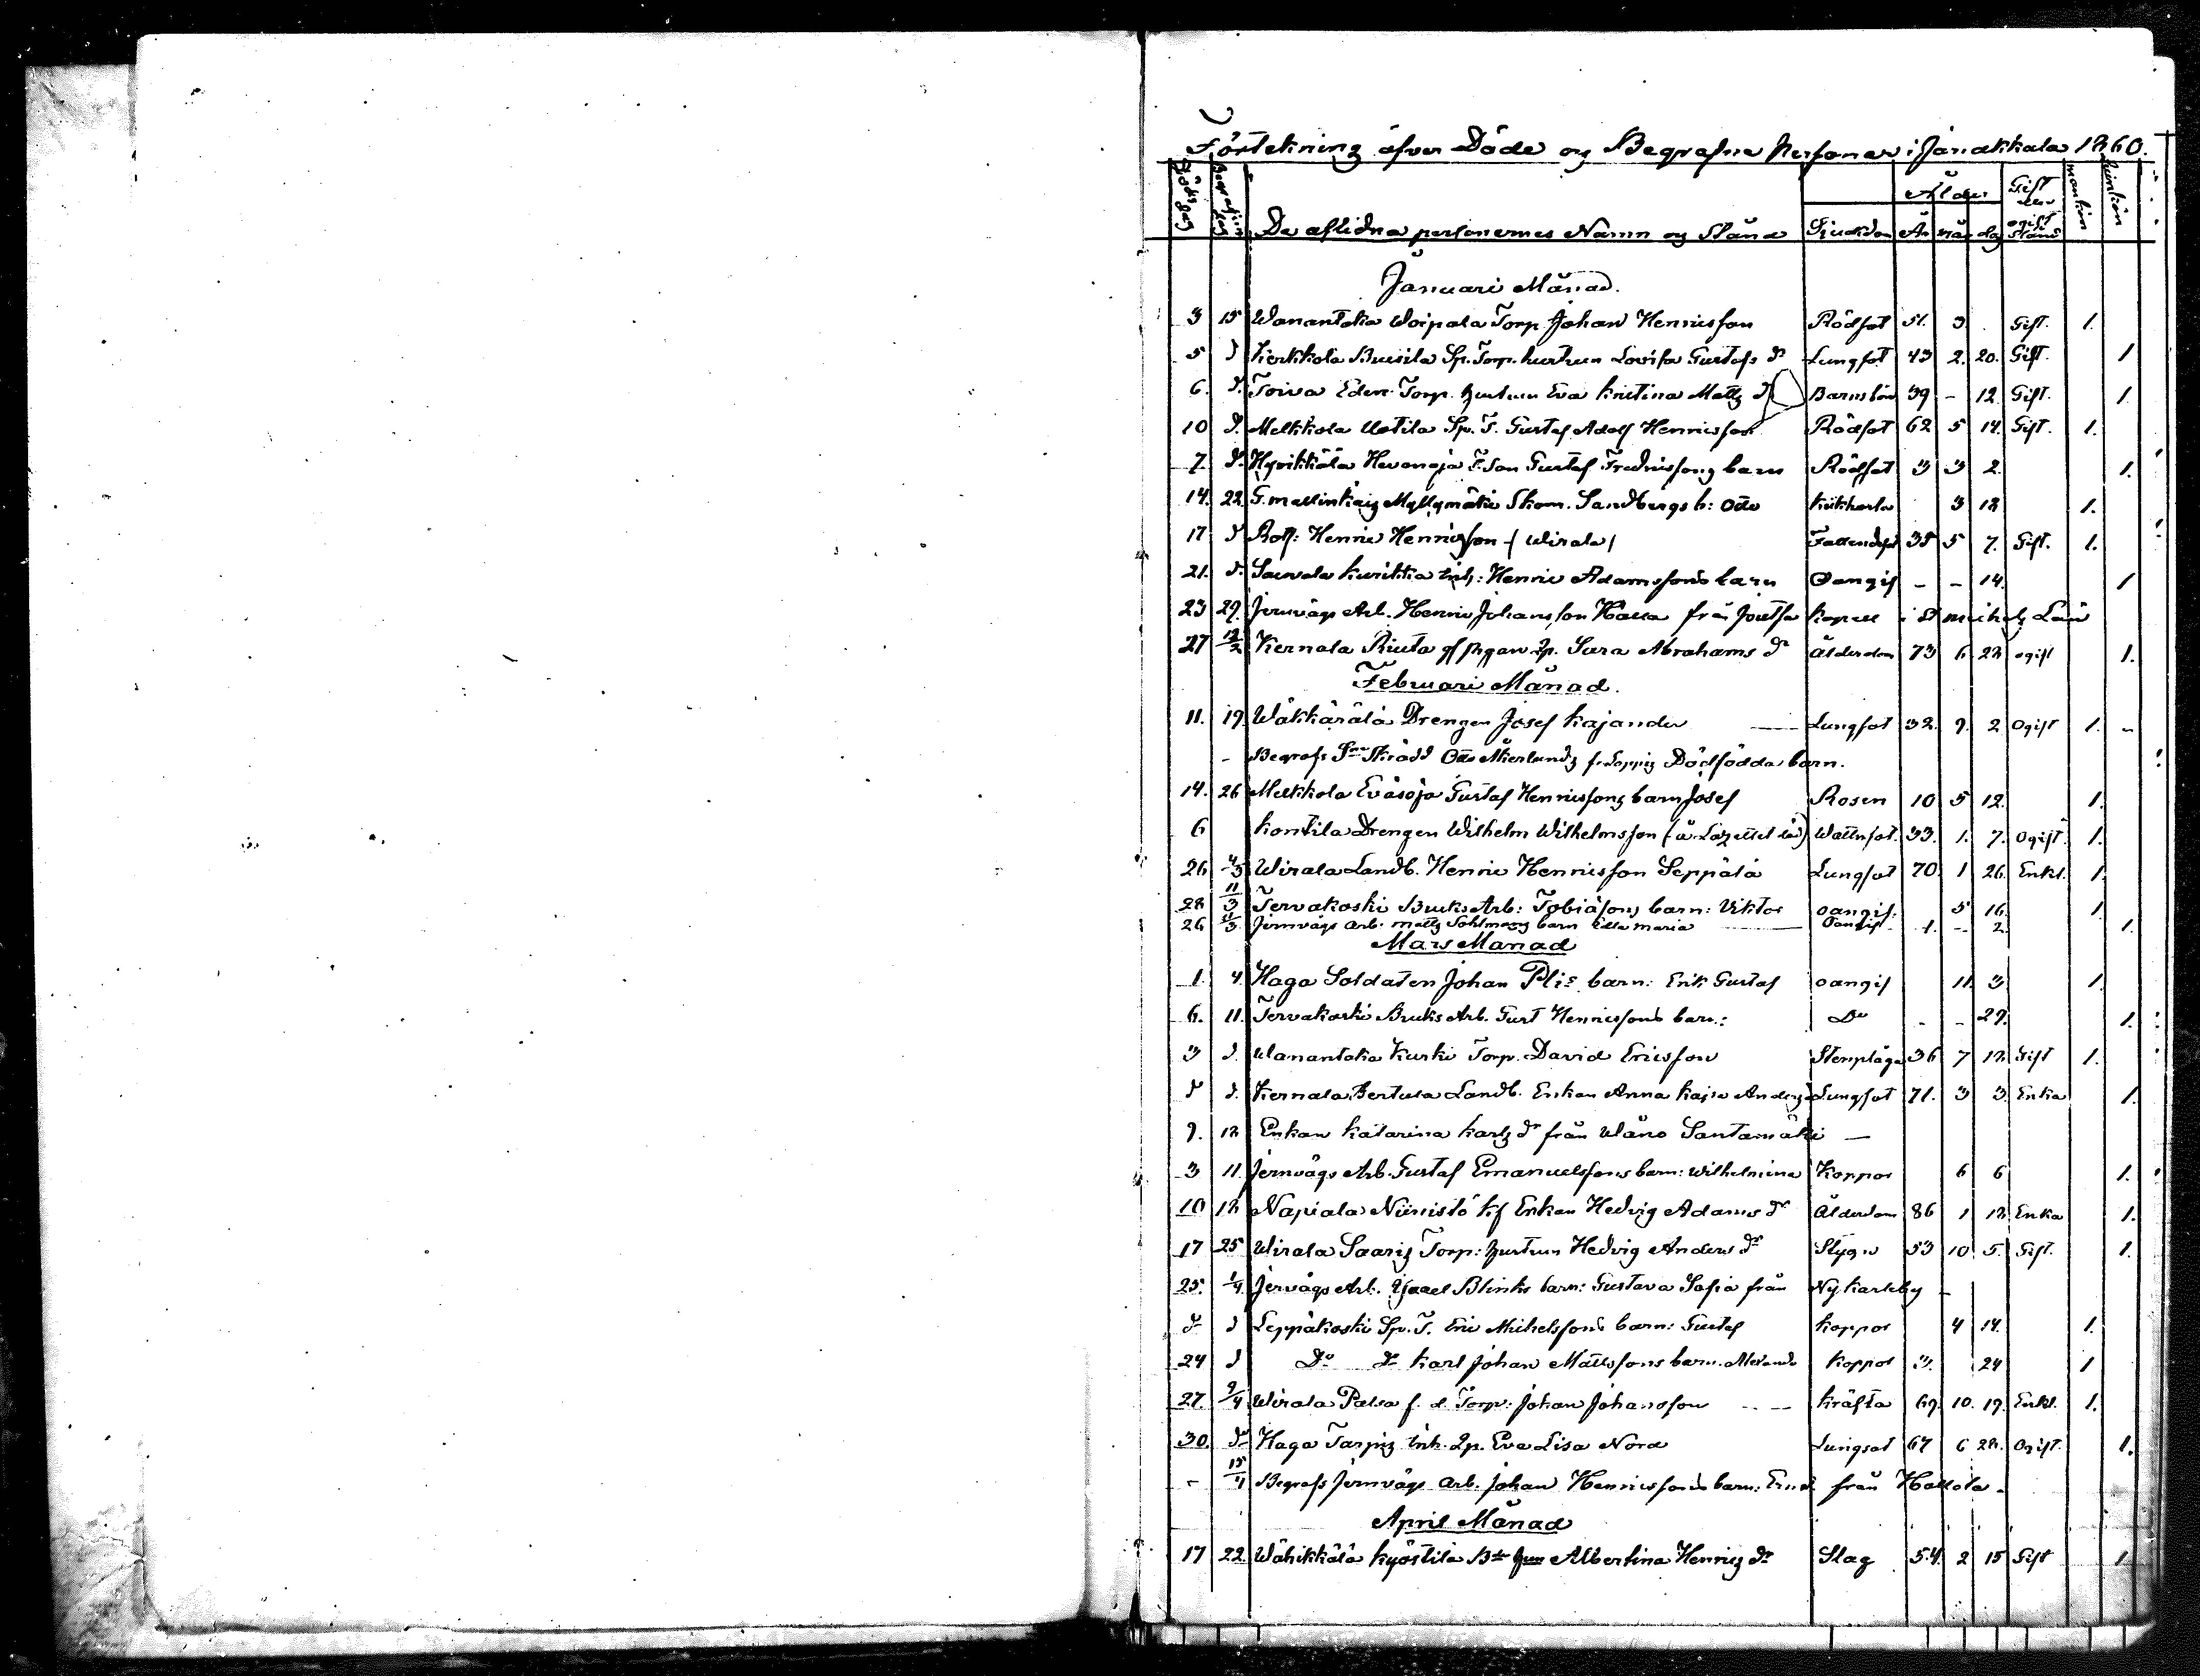 Förtekning öfver Döde og Begrafne Personer i Janakkala 1860.
Döds dag Begrafnin dag De aflidna personernes Namn og Stånd Siukdom Ålder År mån dag Gift eller ogift stånd mankön qvinkön
Januari Månad.
3 15 Wanantaka Woipala Torp Johan Henricsson Rödsot 51. 3. Gift. 1.
5 d Kerkkola Sp. Torp. hustrun Lovisa Gustafs dr Lungsot 43 2. 20. Gift. 1
6. d. Toiva Eden Torp. hustrun Eva Kristina Matts dr Barnsbörd 39 - 12. Gift. 1.
10 d. Melkkola Uotila Sp. T. Gustaf Adolf Henricsson Rödsot 62 5 14. Gift. 1.
7. d. Hyvikkälä Hevonoja T. Son Gustaf Fredricssons barn Rödsot 3 3 2. 1.
14. 22. Myllymäki Skom. Sandbergs b: Otto Kikhosta 3 18 1.
17 d Rotf: Henric Henricsson (Wirala) Fallandesot 35 5 7. Gift. 1.
21. d. Kurikka inh: Henric Adamssons barn Oangif - - 14. 1
23 29. Jernvägs Arb. Henric Johansson Halla från Joutsa Kapell i St Michels Län
27 12/2 Kernala Riuta qf pigan Sara Abrahams dr ålderdom 73 6 28 ogift 1.
Februari Månad.
11. 19. Wäkkärälä Drengen Josef Kajander Lungsot 32. 9. 2 Ogift 1. -
- Begrofs Otto f. Loppis Dödfödda barn.
14. 26 Melkkola Eväsoja Gustaf Henricssons barn Josef Rosen 10 5 12. 1.
6 Kontila Drengen Wilhelm Wilhelmsson Wattusot. 33. 1. 7. Ogift. 1.
26 4/3 Wirala Landb. Henric Henricsson Seppälä Lungsot 70 1 26. Enkl. 1.
28 11/3 Tervakoski Bruks Arb: Tobiassons barn: Viktor oangif. 5 16. 1.
26 11/3 Jernvägs arb. Matts Sohlmans barn Edla Maria Oangif. 1. -- 2. 1.
Mars Månad
1. 4. Haga Soldaten Johan barn: Erik Gustaf oangif 11. 3 1.
6. 11. Tervakoski Bruks Arb. Gust Henricssons barn: Do - - 29. 1.
3 d. Wanantaka Kurki Torp. David Ericsson Stenplåga 36 7 18. Gift 1.
d d. Kernala Bertula Landb. Enkan Anna Kajsa Anders Lungsot 71. 3 3. Enka 1.
9. 18 Enkan Katarina Karls dr från Wåno Santamäki —
3 11. Jernvägs Arb. Gustaf Emanuelssons barn: Wilhelmina Koppor 6 6 1.
10 18 Napiala Niinistö Kf Enkan Hedvig Adams dr Ålderdom 86 1 18. Enka 1.
17 25 Wirala Saaris Torp: hustrun Hedvig Anders dr Stygn 53 10 5. Gift. 1.
25. 1/4 Jervägs Arb. Isaael Blinks barn: Gustava Sofia från Nykarleby -
d d Leppäkoski Sp. T. Eric Michelssons barn: Gustaf Koppor 4 14. 1.
24 d Do do Karl Johan Mattssons barn. Koppor 3. 24 1
27 9/4 Wirala Palsa f. d Torp: Johan Johansson Kräfta 69. 10. 19. Enkl. 1.
30. d Haga Tarpis Inh. Eva Lisa Nord Lungsot 67 6 28. Ogift. 1.
- 15/4 Begrofs Jernvägs Arb. Johan Henricssons barn: från Hollola -
April Månad
17 22 Wähikkälä Kyöstilä Albertina Henrics dr Slag 54. 2 15 Gift 1